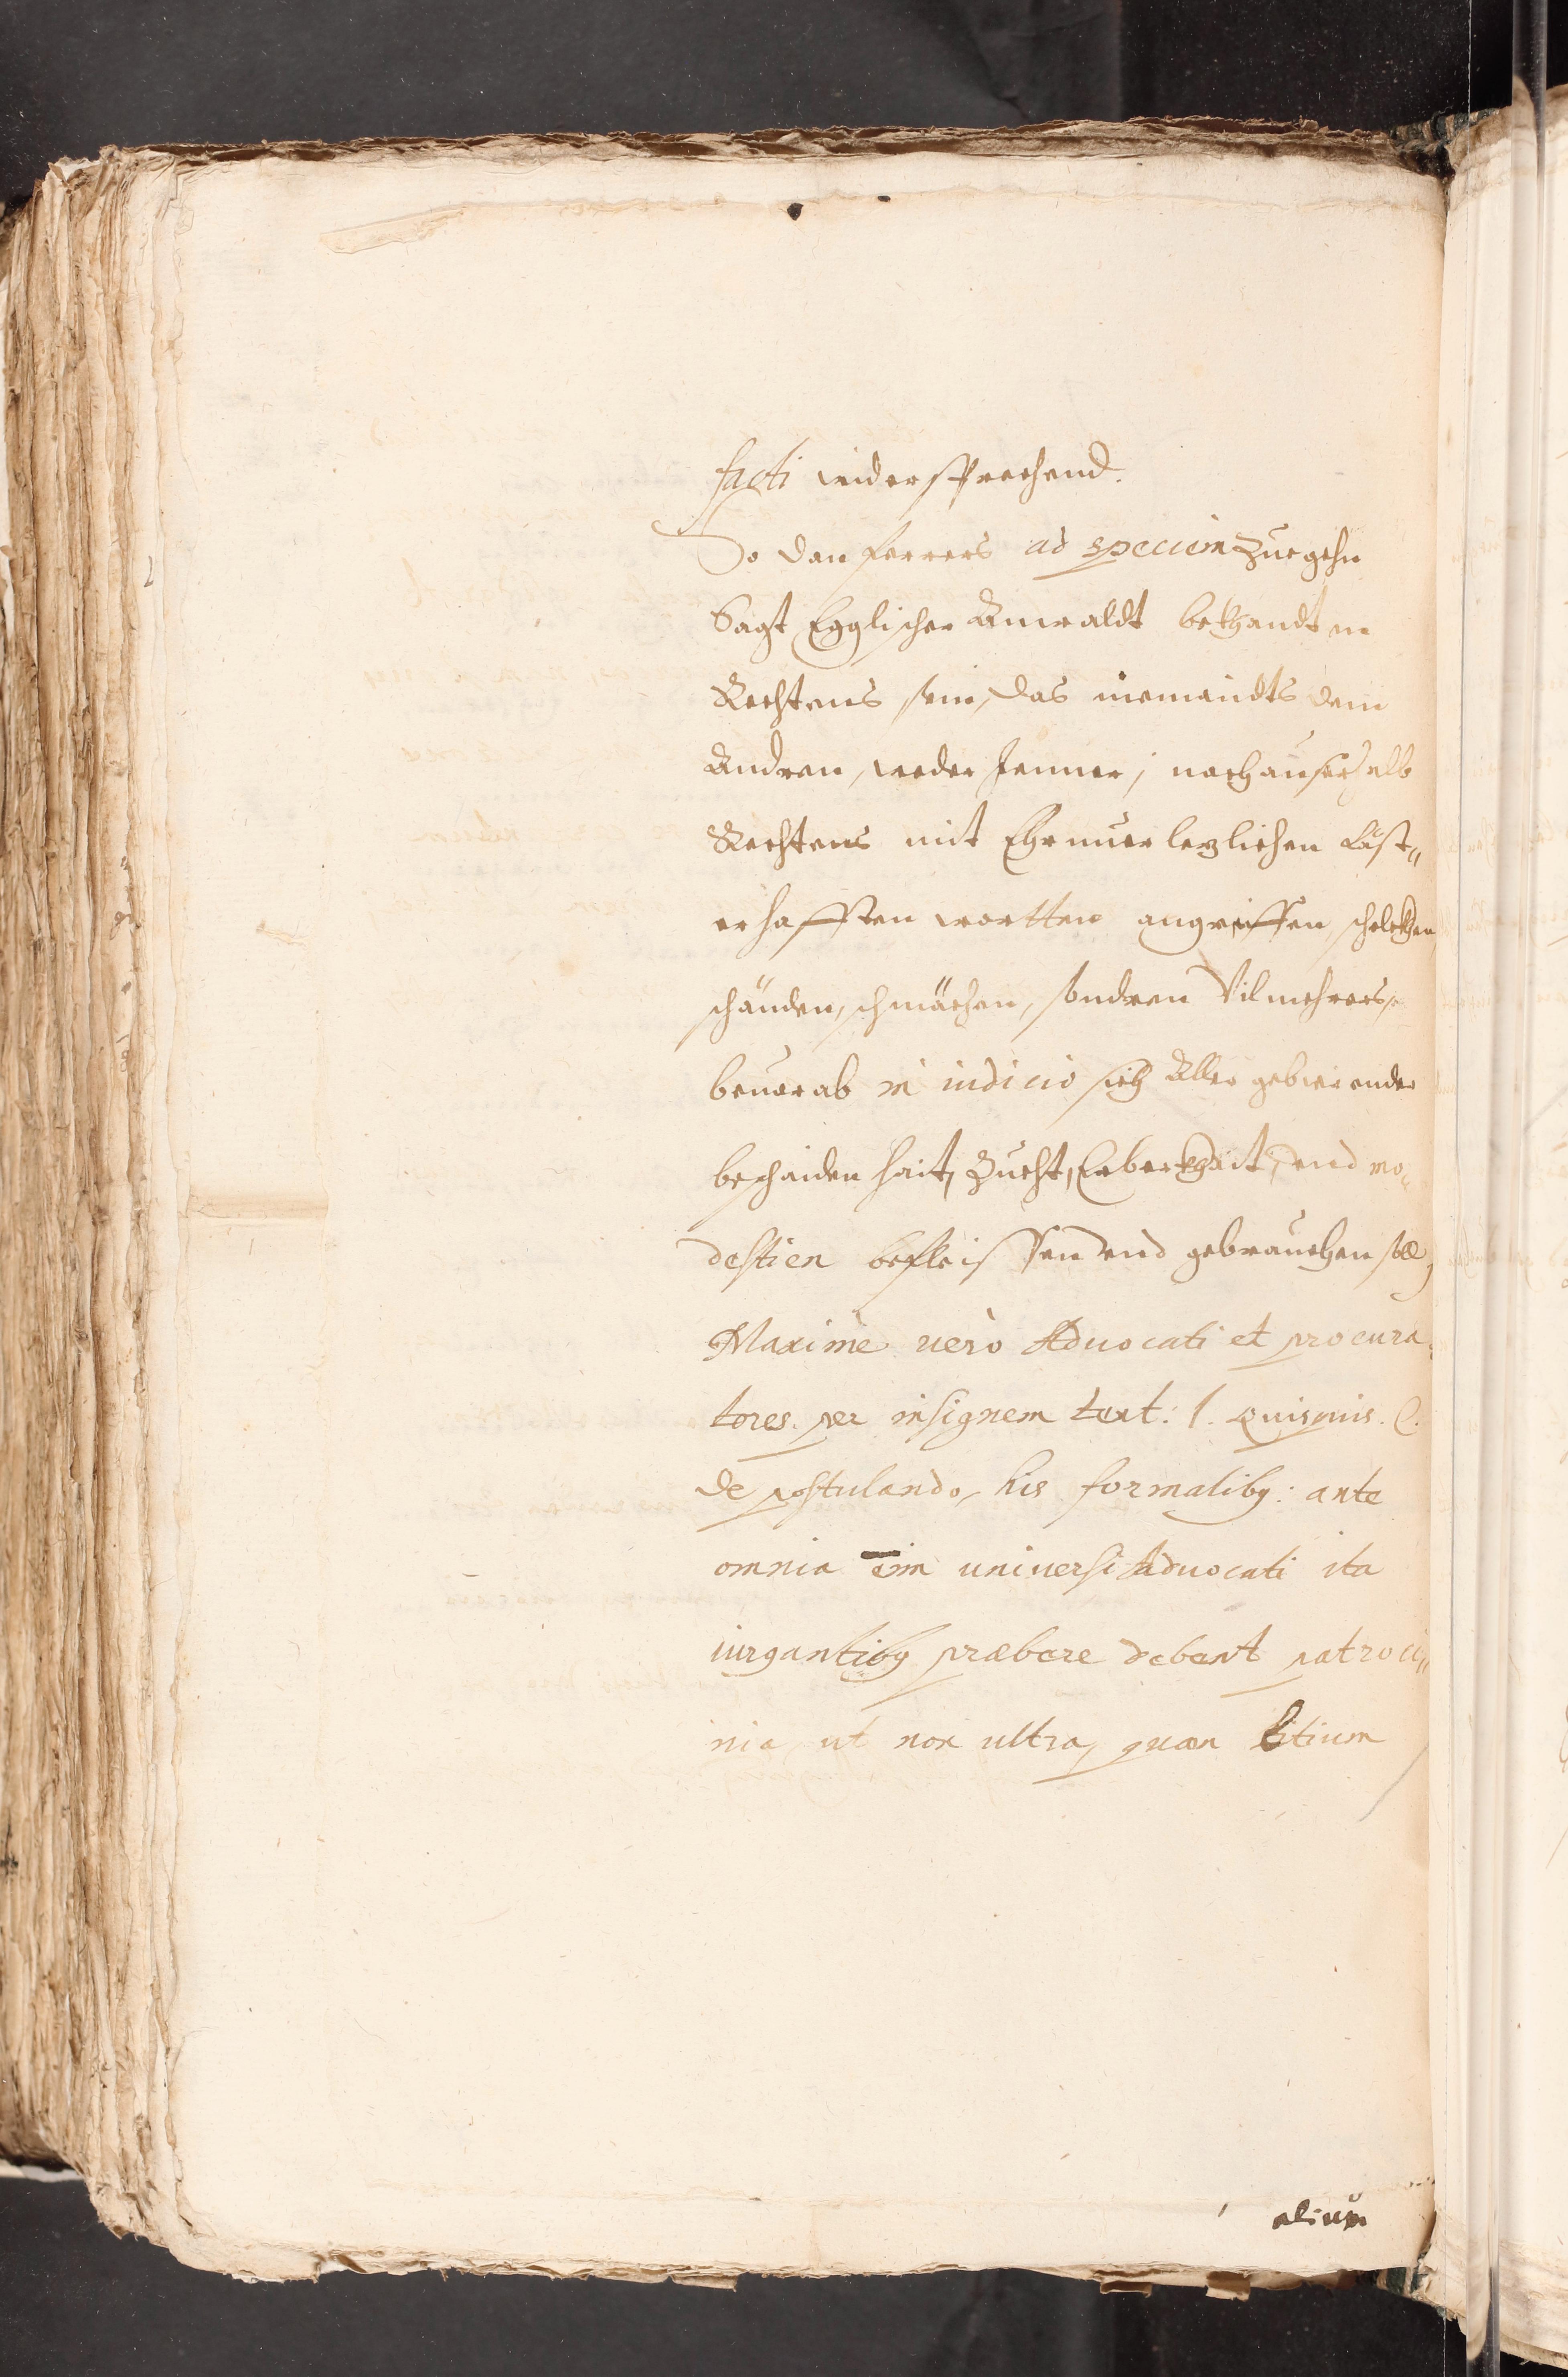 facti widersprechend.
So dan ferrers ad speciem zue gehn
Sagt Egglischer Anwaldt bekhandten
Rechtens sein, das niemandts dem
Andren, weder Jenner, noch ausserhalb
Rechtens mit Ehrnuerlezlichen Läst„
erhafften wortten angreiffen, schelckhen
schänden, schmächen, sondren Vilmehrers,
beuorab in iudicio sich Aller gebierender
beschaidenhait, Zucht, Erberkhait, vnd mo„
destien befleissen vnd gebrauchen soll,
Maximè uerò Aduocati et procura„
tores. per insignem text: l. quisquis. C.
de postulando, his formalibq: ante
omnia em̄ uniuersi Aduocati ita
iurgantibq præbere debent patroci„
nia, ut non ultra, quam Litium
alium